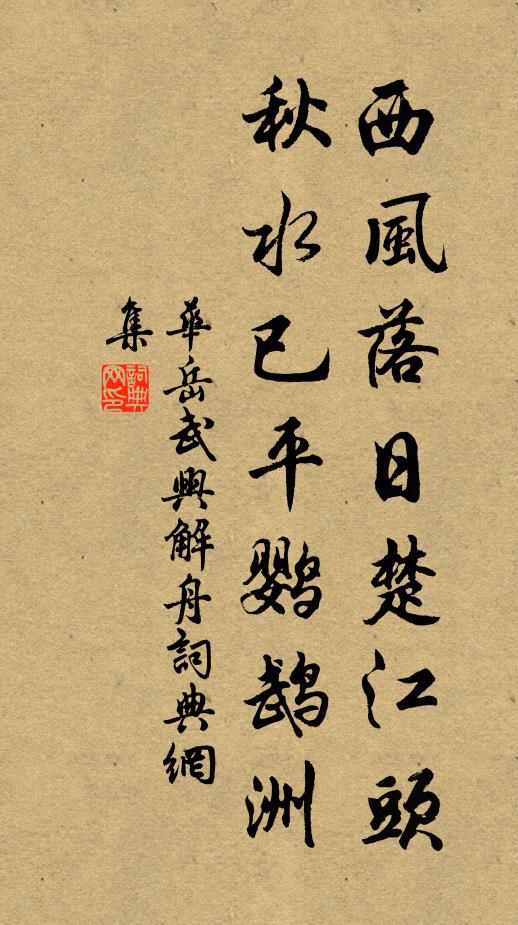 西風落日楚江頭
秋水已平鸚鵡洲
華岳武興解舟詞典網
集
詞典
网印